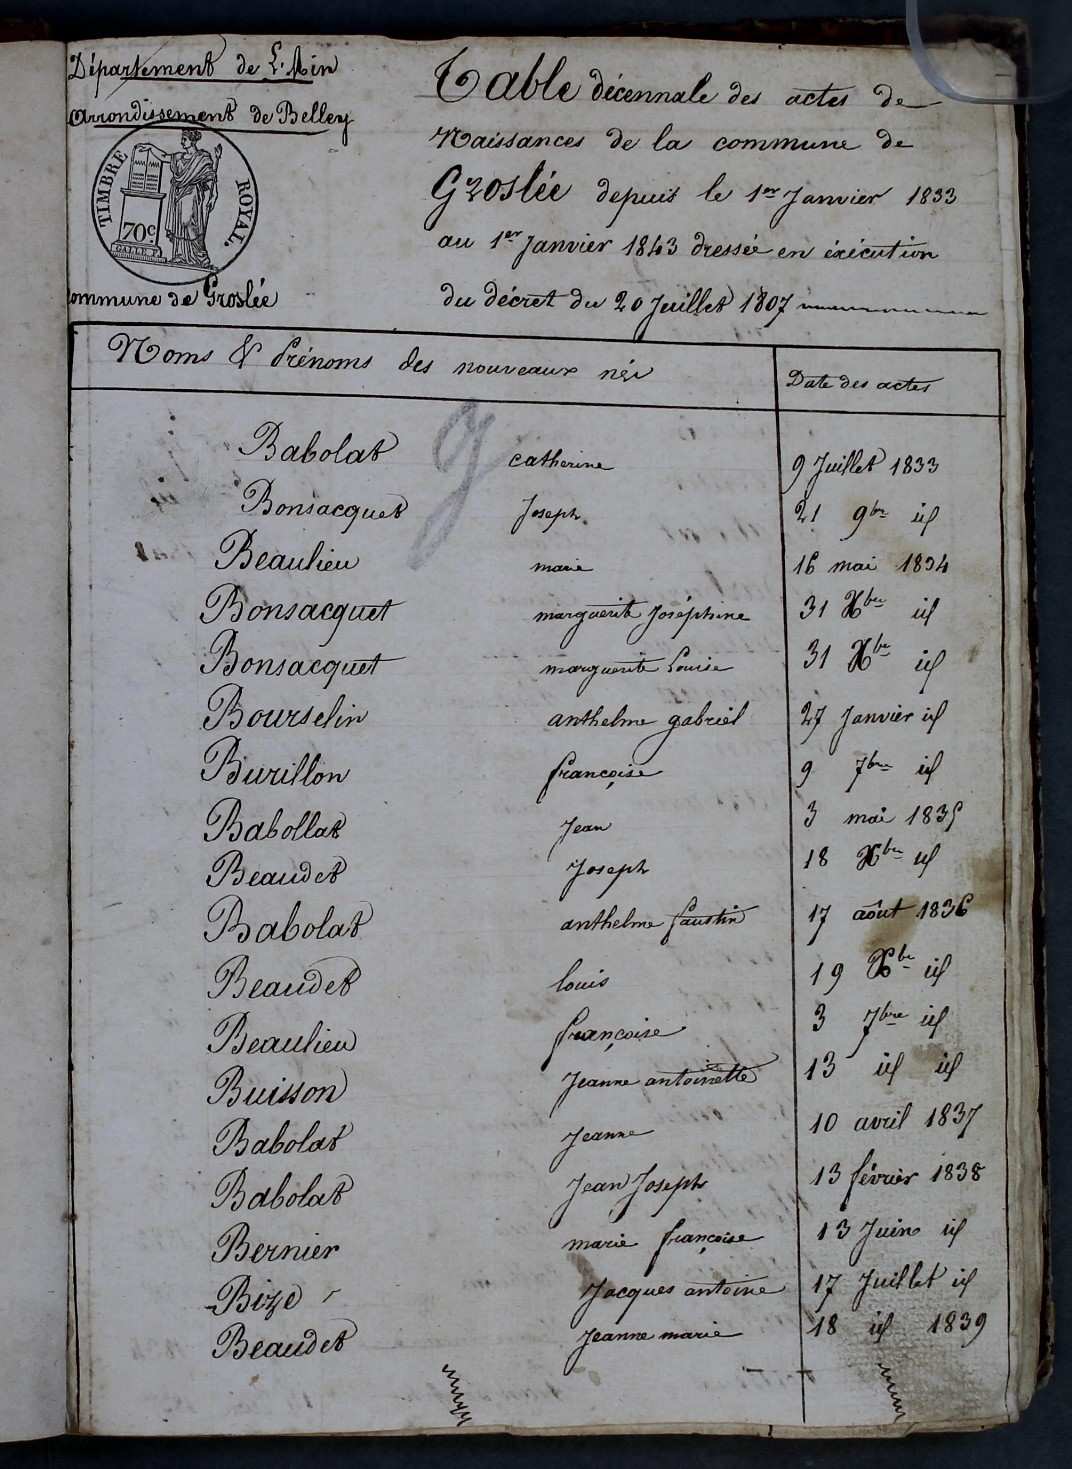 Département de L'Ain
Arrondissement de Belley
TIMBRE ROYAL.
70c
GALLE
Commune de Groslée
Table décennale des actes de
Naissances de la commune de
Groslée depuis le 1er Janvier 1833
au 1er Janvier 1843 dressée en éxécution
du décret du 20 Juillet 1807
Noms & Prénoms des nouveaux nés Date des actes
Babolat catherine 9 Juillet 1833
Bonsacquet Joseph 21 9bre id
Beaulieu marie 16 mai 1834
Bonsacquet marguerite Joséphine 31 Xbre id
Bonsacquet marguerite Louise 31 Xbre id
Bourselin anthelme gabriel 27 Janvier id
Burillon françoise 9 7bre id
Babollat Jean 3 mai 1835
Beaudet Joseph 18 Xbre id
Babolat anthelme faustin 17 août 1836
Beaudet louis 19 Xbre id
Beaulieu françoise 3 7bre id
Buisson Jeanne antoinette 13 id id
Babolat Jeanne 10 avril 1837
Babolat Jean Joseph 13 février 1838
Bernier marie françoise 13 Juin id
Bize Jacques antoine 17 Juillet id
Beaudet Jeanne marie 18 id 1839